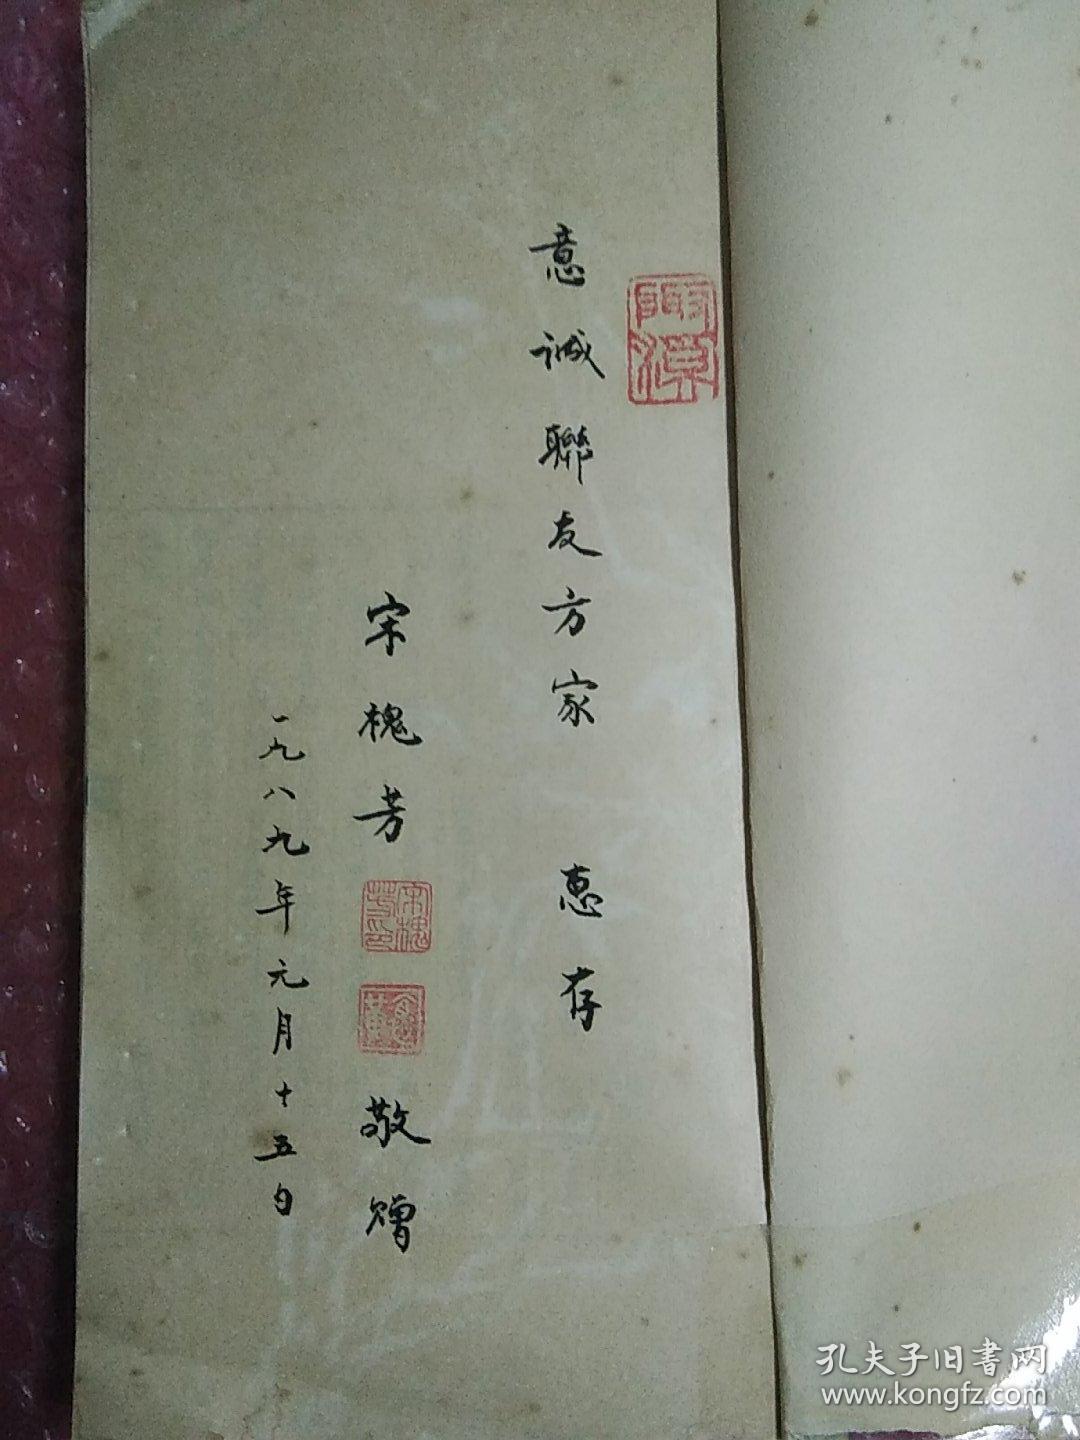 意诚聯友方家 惠存
宋槐芳 敬赠
宋槐芳印
一九八九年元月十五日
孔夫子旧書网
www.kongfz.com